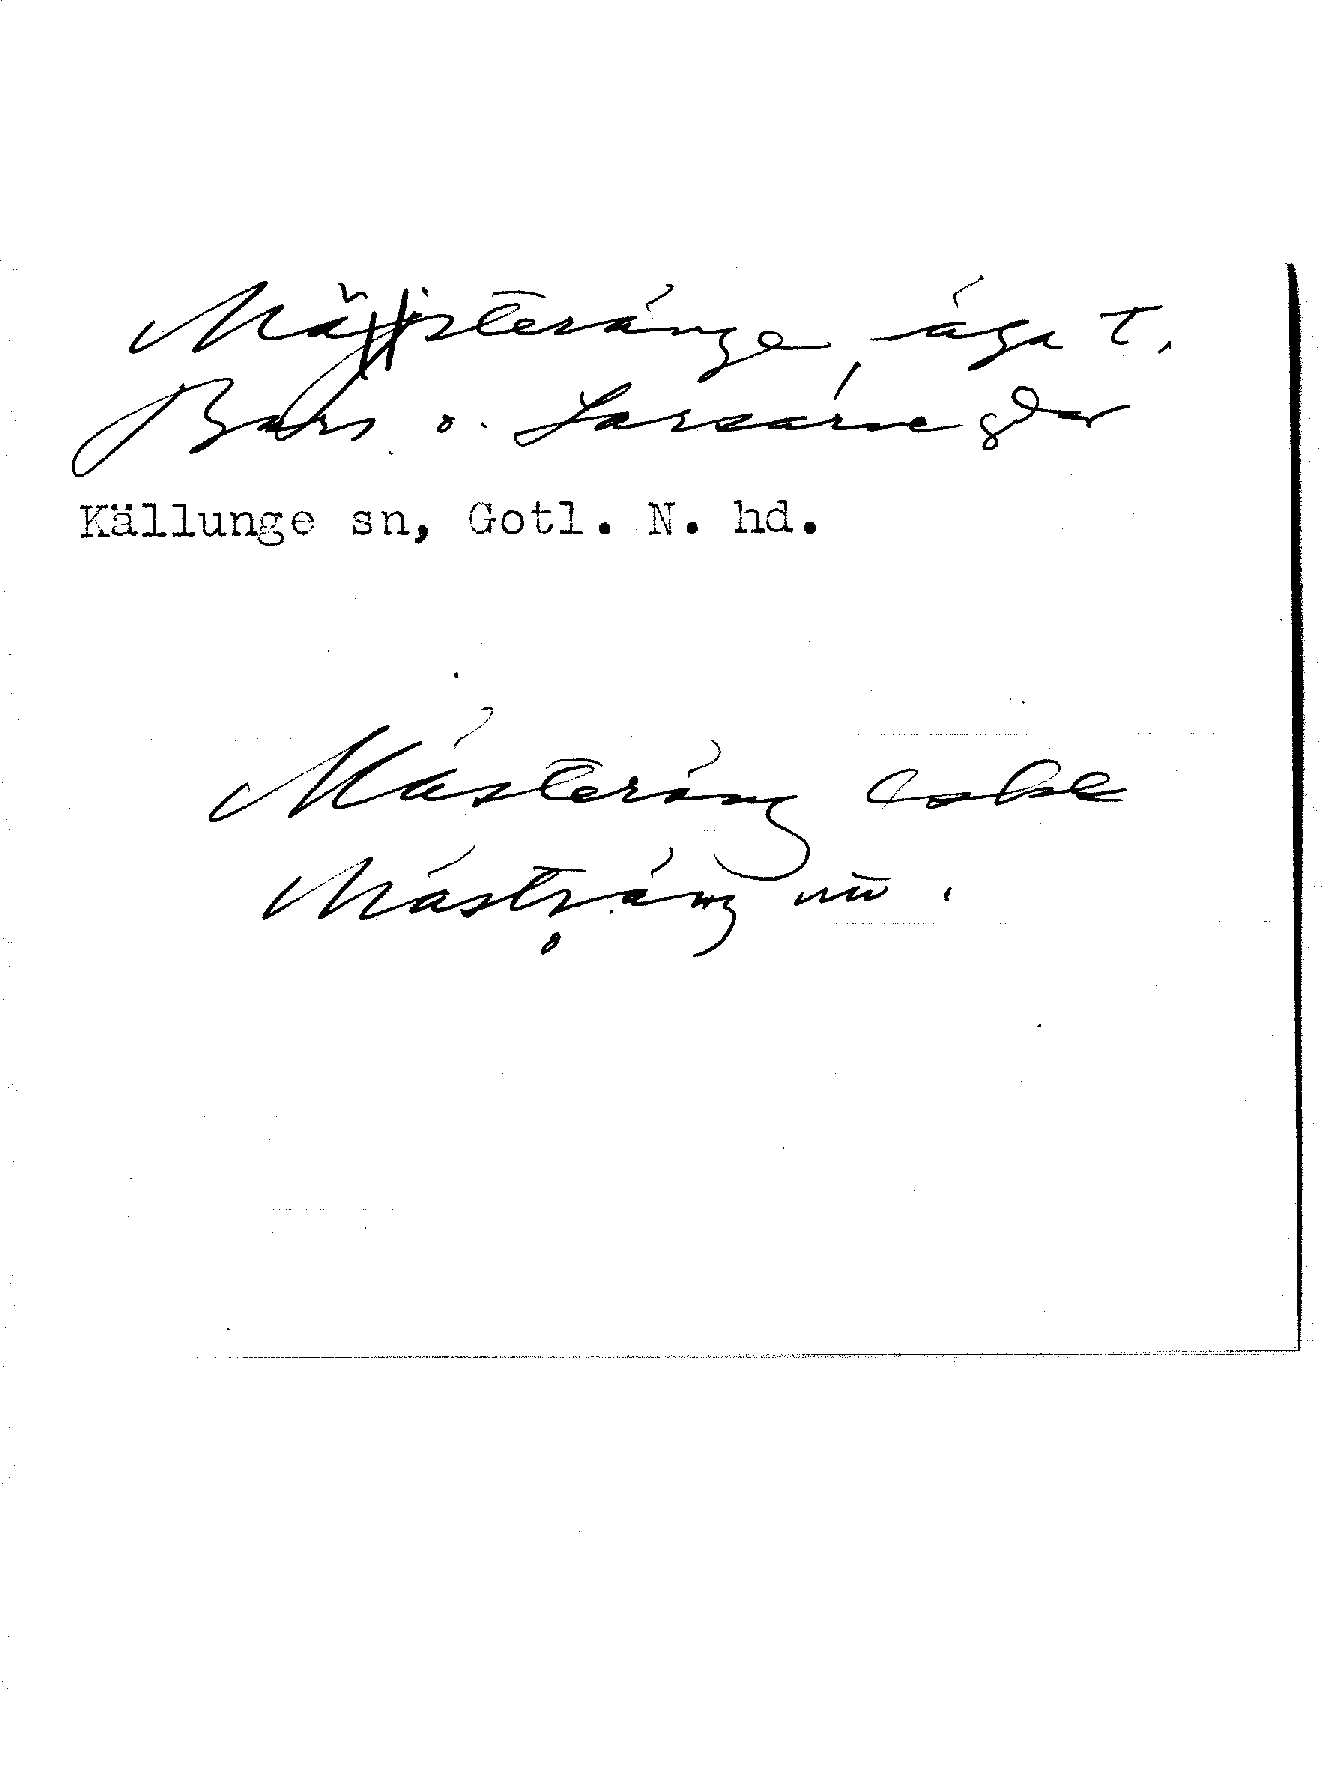 Mästeränge, äga t.
Bars o. Larsarve gdar
Källunge sn, Gotl. N. hd.
Mästeräng
Mästräng nu.